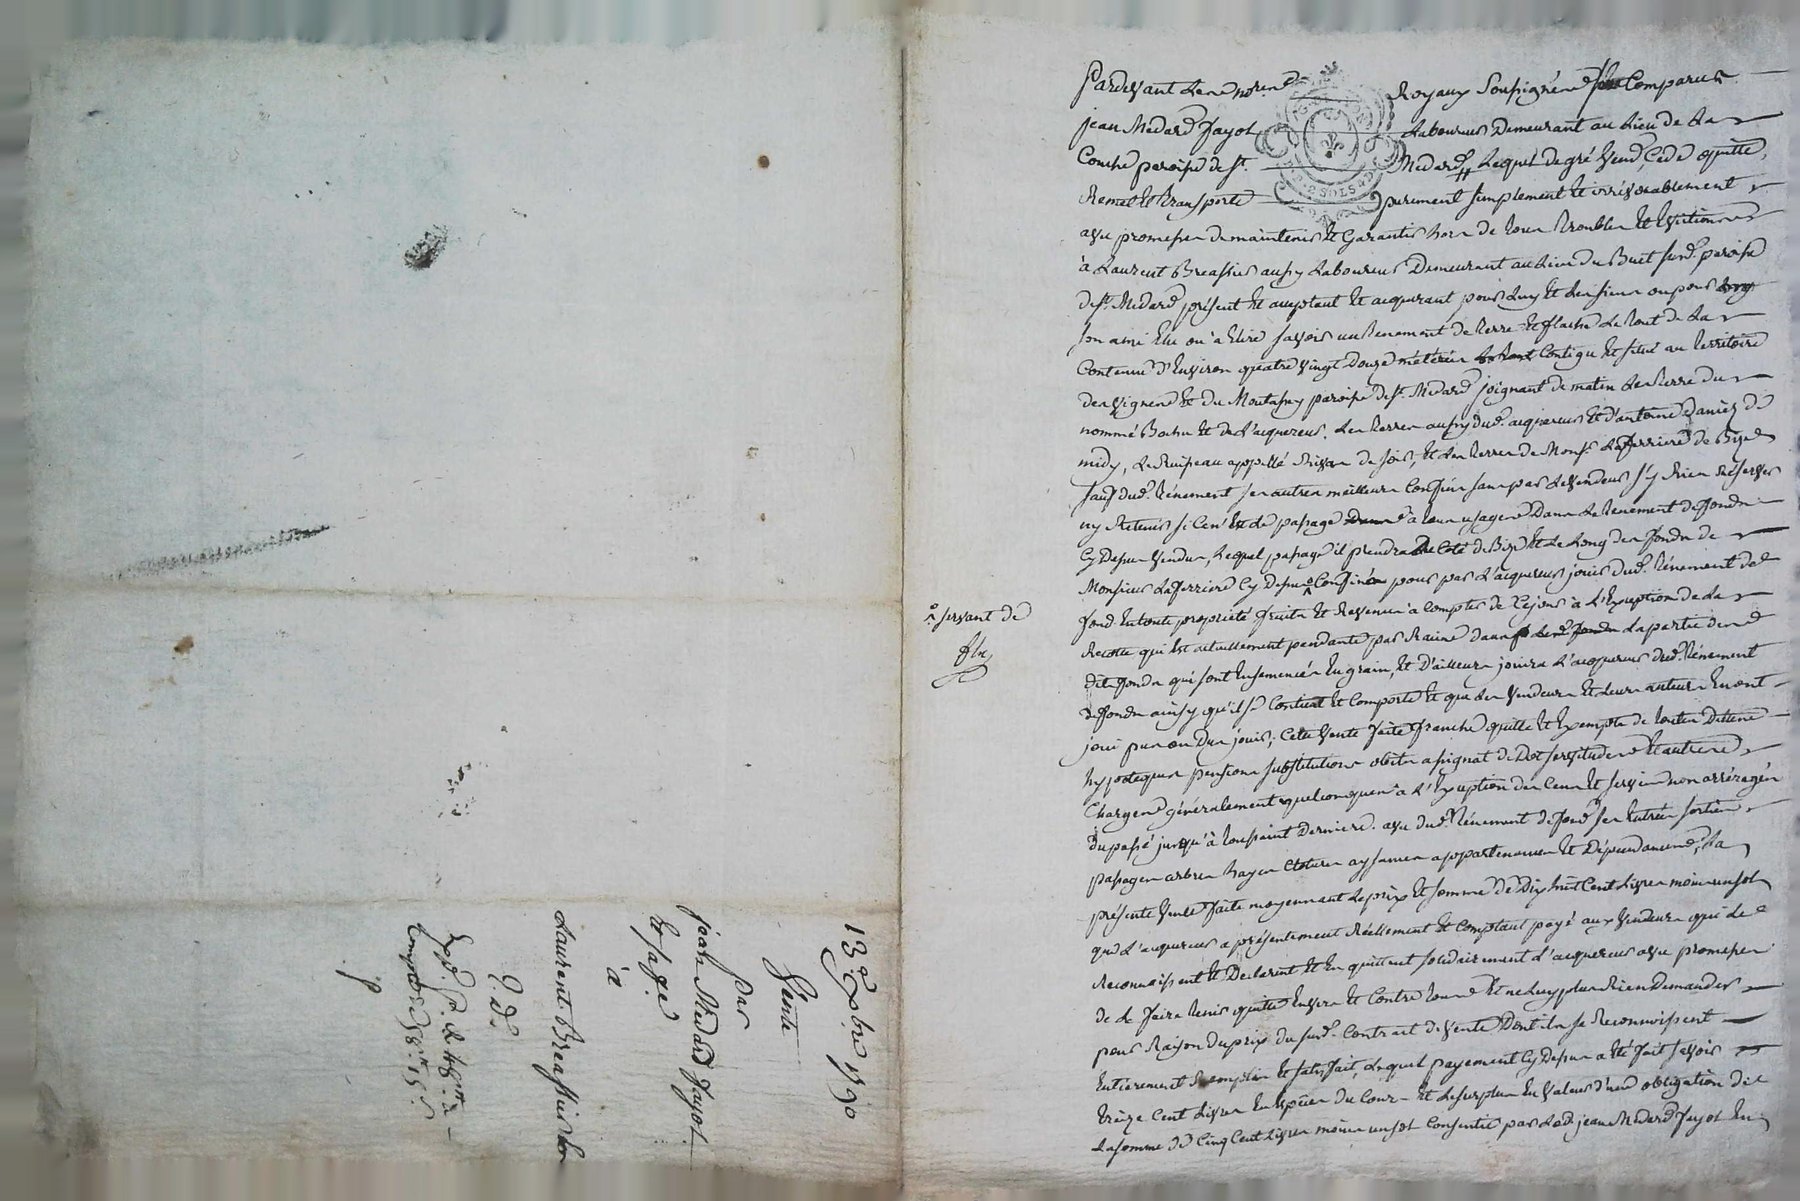 13e Xbre 1790
Vente
par
jean Medard Jayol
et sage
à
Laurent Breassier
Q. d.
° servant de
Pardevant Royaux Soussignés Comparus
jean Medard Jayol Laboureur Demeurant au Lieu de La
Conche paroisse de St. Medard, Lequel de gré Vend, Cede, quitte,
Remet Et transporte purement simplement Et irrévocablement
avec promesse de maintenir Et Garantir hors de tous troubles Et Evictions
à Laurent Breassier aussy Laboureur Demeurant au Lieu du Buet surd. paroisse
de St. Medard présent Et acceptant Et acquerant pour Luy Et Les siens ou pour
son ami Elu ou à Elire savoir un tenement de terre Et flache Le tout de La
Contenue d'Environ quatre vingt Douze méterées Contigu Et situé au territoire
des Vignes Et du Montassey paroisse de St. Medard joignant de matin Les terres du
nommé Et de L'acquereur. Les terres aussy dud. acquereur Et d'antoine Daniez de
midy, Le Ruisseau appellé de soir, Et Les terres de Monsr. Laferriere de Bize
sauf dud. ténement ses autres meilleurs Confins sans par Le Vendeur s'y Rien Réserver
ny Retenir si Ce n'Est Le passage à tous usages Dans Le tenement de fonds
Cy Dessus Vendu, Lequel passage il prendra Du Coté de Bize Et Le Long des fonds de
Monsieur Laferriere Cy Dessus Confiné pour par L'acquereur jouir dud. ténement de
fond En toute propriété fruits Et Revenus à Compter de Ce jour à L'Exception de La
Recolte qui Est actuellement pendante par Racine dans La partie de
dits fonds qui sont Ensemencés En grain, Et D'ailleurs jouira L'acquereur dud. ténement
de fonds ainsy qu'il se Contient Et Comporte Et que Les Vendeurs Et Leurs auteurs En ont
joui pu ou Du jouir; Cette Vente faite franche quitte Et Exempte de toutes Dettes
hypoteques pensions substitutions obits assignat de Dot servitudes Et autres
Charges généralement quelconques à L'Exception des Cens Et servis non arréragés
Du passé jusqu'à toussaint Derniere. avec dud. ténement de fond ses Entrées sorties
passages arbres hayes Cloture aysances appartenances Et Dépendances, La
présente Vente faite moyennant Le prix Et somme de Dix huit Cent Livres moins un sol
que L'acquereur a présentement Réellement Et Comptant payé aux Vendeurs qui Le
Reconnaissent Et Declarent Et En quittent solidairement L'acquereur avec promesse
de Le faire tenir quitte Envers Et Contre tous Et ne Luy plus Rien Demander
pour Raison Du prix du surd. Contract de Vente Dont ils se Reconnoissent
Entierement Remplis Et satisfait, Lequel payement Cy Dessus a Eté fait savoir
treize Cent Livres En Espèces du Cours Et Le surplus En Valeur d'une obligation de
La somme de Cinq Cent Livres moins un sol Consentie par Led. jean Medard Jayol En